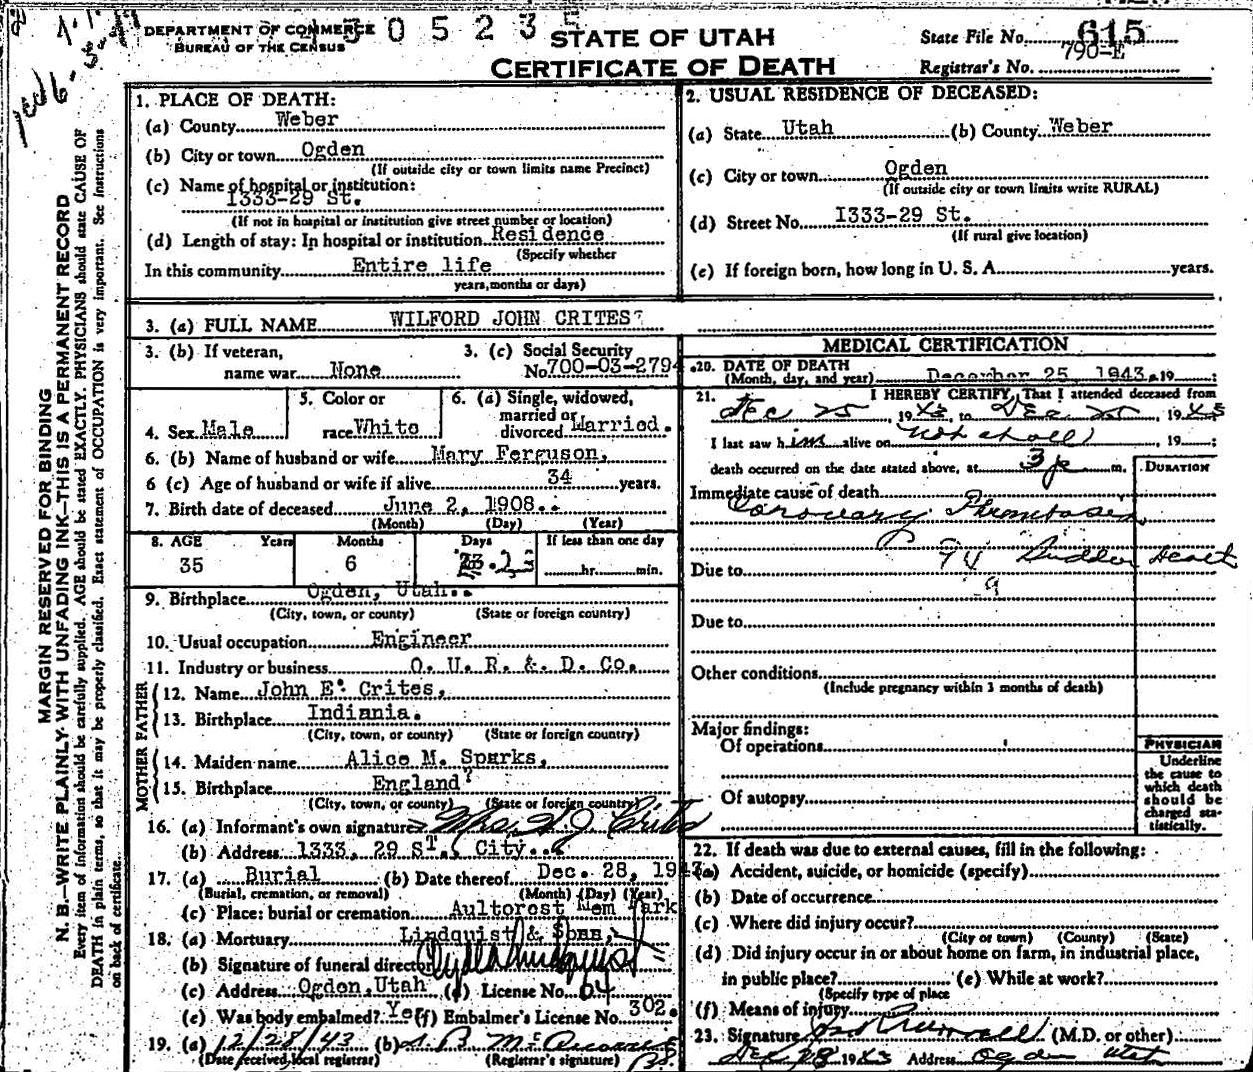 DEPARTMENT OF COMMERCE
BUREAU OF THE CENSUS
STATE OF UTAH
CERTIFICATE OF DEATH
State File No. 615
Registrar's No. 790-E
MARGIN RESERVED FOR BINDING
N. B.—WRITE PLAINLY WITH UNFADING INK—THIS IS A PERMANENT RECORD
Every item of information should be carefully supplied. AGE should be stated EXACTLY. PHYSICIANS should state CAUSE OF
DEATH in plain terms, so that it may be properly classified. Exact statement of OCCUPATION is very important. See instructions
on back of certificate.
1. PLACE OF DEATH:
(a) County Weber
(b) City or town Ogden
(If outside city or town limits name Precinct)
(c) Name of hospital or institution:
I333-29 St.
(If not in hospital or institution give street number or location)
(d) Length of stay: In hospital or institution Residence
(Specify whether
In this community Entire life
years, months or days)
2. USUAL RESIDENCE OF DECEASED:
(a) State Utah (b) County Weber
(c) City or town Ogden
(If outside city or town limits write RURAL)
(d) Street No. I333-29 St.
(If rural give location)
(e) If foreign born, how long in U. S. A. years.
3. (a) FULL NAME WILFORD JOHN CRITES
3. (b) If veteran, name war None
3. (c) Social Security No. 700-03-2794
4. Sex Male
5. Color or race White
6. (a) Single, widowed, married or divorced Married.
6. (b) Name of husband or wife Mary Ferguson.
6 (c) Age of husband or wife if alive 34 years.
7. Birth date of deceased June 2, 1908.
(Month) (Day) (Year)
8. AGE Years Months Days If less than one day
35 6 23 hr. min.
9. Birthplace Ogden, Utah.
(City, town, or county) (State or foreign country)
10. Usual occupation Engineer
11. Industry or business O. U. R. & D. Co.
FATHER
12. Name John E. Crites,
13. Birthplace Indiania.
(City, town, or county) (State or foreign country)
MOTHER
14. Maiden name Alice M. Sparks,
15. Birthplace England
(City, town, or county) (State or foreign country)
16. (a) Informant's own signature Mrs. W. J. Crites
(b) Address 1333, 29 ST., City.
17. (a) Burial (b) Date thereof Dec. 28, 1943
(Burial, cremation, or removal) (Month) (Day) (Year)
(c) Place: burial or cremation Aultorest Mem Park
18. (a) Mortuary Lindquist & Sons,
(b) Signature of funeral director
(c) Address Ogden, Utah (d) License No. 64
(e) Was body embalmed? Yes (f) Embalmer's License No. 302.
19. (a) 12/28/43 (b)
(Date received local registrar) (Registrar's signature)
MEDICAL CERTIFICATION
20. DATE OF DEATH
(Month, day, and year) December 25, 1943. 19 ;
21. I HEREBY CERTIFY, That I attended deceased from
Dec 25, 1943 to Dec 25, 1943
I last saw him alive on not at all, 19 ;
death occurred on the date stated above, at 3 p m.
DURATION
Immediate cause of death
Coronary Thrombosis
Due to 94 Sudden death
a
Due to
Other conditions
(Include pregnancy within 3 months of death)
Major findings:
Of operations
Of autopsy
PHYSICIAN
Underline
the cause to
which death
should be
charged sta-
tistically.
22. If death was due to external causes, fill in the following:
(a) Accident, suicide, or homicide (specify)
(b) Date of occurrence
(c) Where did injury occur?
(City or town) (County) (State)
(d) Did injury occur in or about home on farm, in industrial place,
in public place? (e) While at work?
(Specify type of place
(f) Means of injury
23. Signature (M.D. or other)
Dec 28 1943 Address Ogden Utah